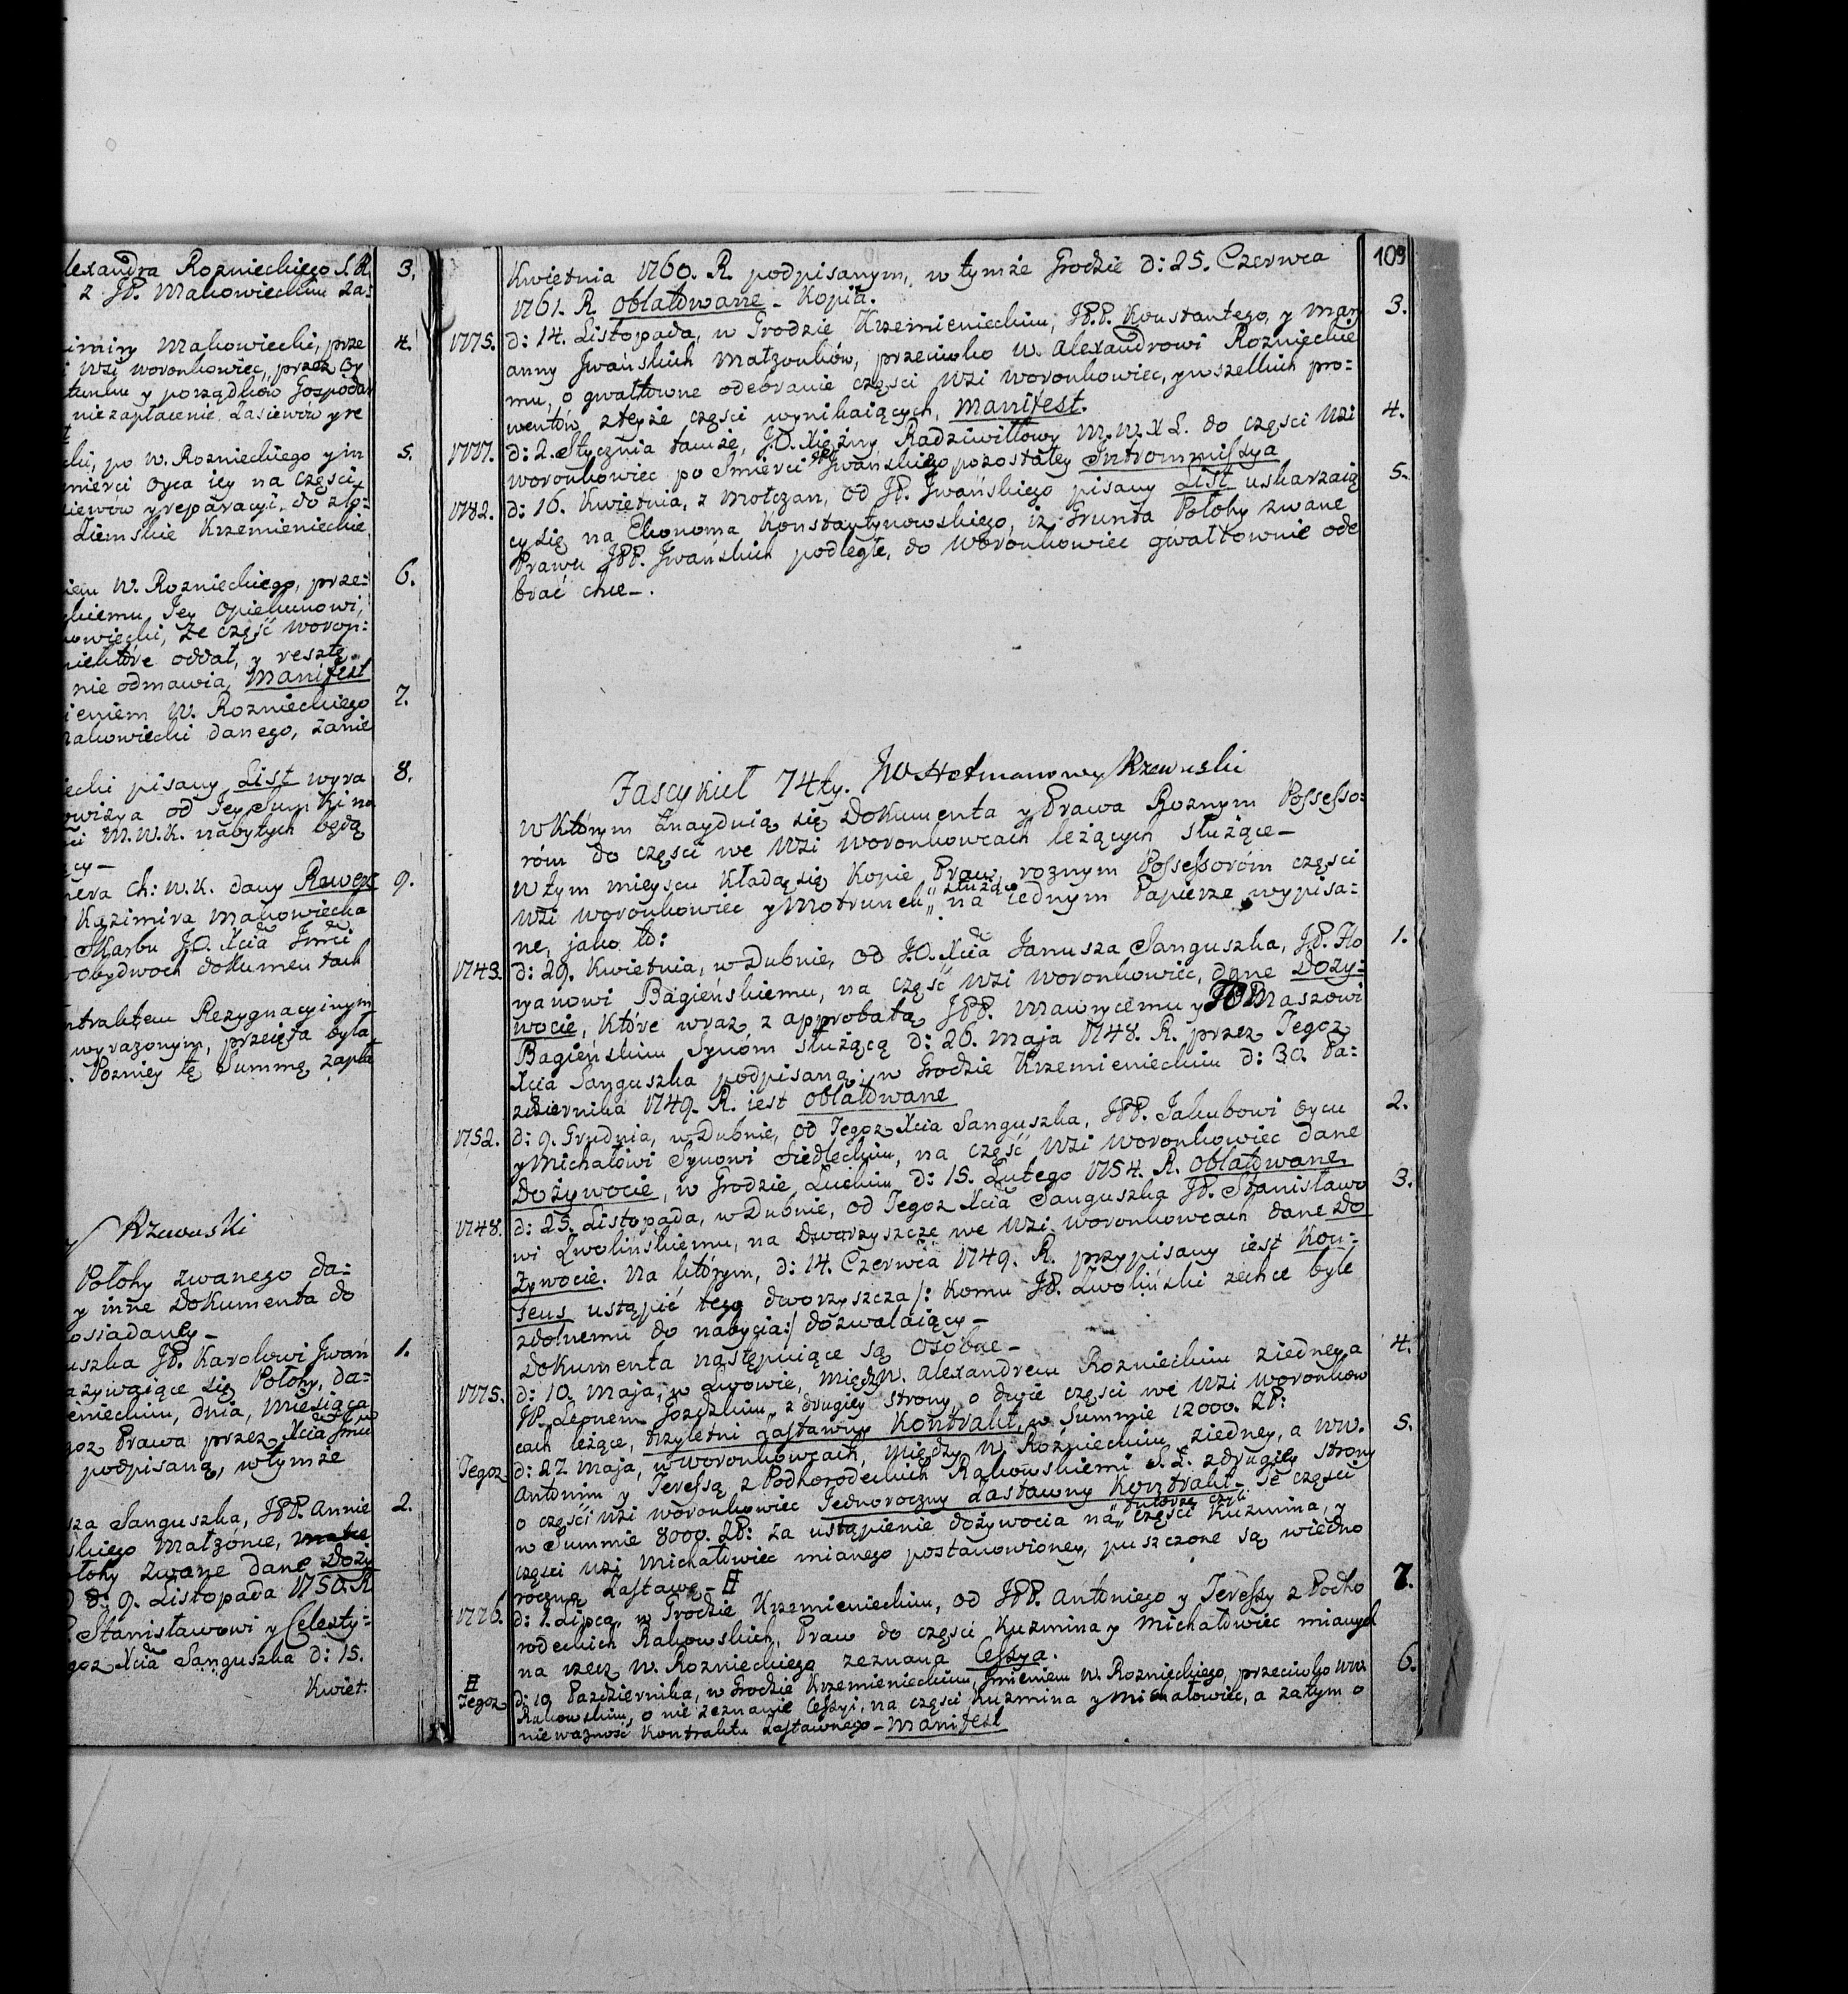 lexandra Roznieckiego S.R. 3.
z JP. Makowieckim za=
imiry Makowiecki, prze 4.
Wsi Woronkowiec, przez
tunku y porządków Gospodar
niezapłacenie Zasiewów y re
cki, po W. Roznieckiego ym 5.
mierci Oyca iey na części
siewów y reparacyi, do zło=
Ziemskie Krzemienieckie
iem W. Roznieckiego, prze= 6.
ckiemu, Jey Opiekunowi,
kowiecki, że część Woron=
niektóre oddał, y resztę
nie odmawia, Manifest
ieniem W. Roznieckiego 7.
Makowiecki danego, zanie
iecki pisany List wyra 8.
owizya od Jey Summ Kina
ci M.W.K. nabytych będą
ący—
nera Ch: W.K. dany Rewers 9.
Kazimira Makowiecka
Skarbu J.O. Xcia Jmci
Obydwoch dokumentach
ntraktem Rezygnacyinym
wyrazonym, przeięta była
. Pozniey tę Summę zapła
Rzewuski
Połohy zwanego da=
y inne Dokumenta do
osiadaney—
uszka JP. Karolowi Jwań 1.
azywaiące się Połohy, da=
ienieckim, dnia, Miesiąca
goz Prawa przez Xcia Jmci
podpisaną, wtymże
sza Sanguszka, JPP. Annie 2.
skiego Małżonce,
ołohy zwane dane Doży
d: 9. Listopada 1750. R
Stanisławowi y Celesty=
goz Xcia Sanguszka d: 15.
Kwiet.
109
Kwietnia 1760. R. podpisanym, wtymże Grodzie d: 25. Czerwca
1761. R. Oblatowane - Kopia.
1775. d: 14. Listopada, w Grodzie Krzemienieckim, JP.P. Konstantego, y Mary 3.
anny Jwańskich Małżonków, przeciwko W. Alexandrowi Rozniecki
mu, o gwałtowne odebranie części Wsi Woronkowiec, y wszelkich pro=
wentów z teyże części wynikaiących, Manifest.
1777. d: 2. Stycznia tamże, J.O. Xiężny Radziwiłłowy M.W.X L. do części Wsi 4.
Woronkowiec po Smierci JP. Jwańskiego pozostałey Intromissya
1782. d: 16. Kwietnia, z Mołczan, od JP. Jwańskiego pisany List uskarzaią 5.
cy się na Ekonoma Konstantynowskiego, iż Grunta Połohy zwane
Prawu JPP. Jwańskich podległe, do Woronkowiec gwałtownie ode
brać chce—.
Fascykuł 74ty. JW Hetmanowy Rzewuski
w Którym znayduią się Dokumenta y Prawa Roznym Possesso=
róm do części we Wsi Woronkowcach leżących służące—
W tym mieyscu kładą się Kopie Praw, roznym Possessoróm części
Wsi Woronkowiec y Motrunek „służące na iednym Papierze wypisa=
ne, jako to:
1743. d: 29. Kwietnia, w Dubnie, od J.O. Xcia Janusza Sanguszka, JP. Flo 1.
ryanowi Bagieńskiemu, na część Wsi Woronkowiec, dane Doży=
wocie, Które wraz z approbatą JPP. Maurycemu y Tomaszowi
Bagieńskim Synóm służącą d: 26. Maja 1748. R. przez Tegoz
Xcia Sanguszka podpisaną, w Grodzie Krzemienieckim d: 30. Pa=
zdziernika 1749. R. iest Oblatowane
1752. d: 9. Grudnia, w Dubnie, od Tegoz Xcia Sanguszka, JPP. Jakubowi Oycu 2.
y Michałowi Synowi Siedleckim, na część Wsi Woronkowiec dane
Dożywocie, w Grodzie Łuckim d: 15. Lutego 1754. R. Oblatowane
1748. d: 25. Listopada, w Dubnie, od Tegoz Xcia Sanguszka JP. Stanisławo 3.
wi Zwolińskiemu, na Dworzyszcze we Wsi Woronkowcach dane Do
żywocie. Na którym, d: 14. Czerwca 1749. R. przypisany iest Kon=
sens ustąpić tego dworzyszcza /: Komu JP. Zwoliński zechce byle
zdolnemu do nabycia:/ dozwalaiący—
Dokumenta następuiące są Osobne—
1775. d: 10. Maja, w Lwowie, między W. Alexandrem Roznieckim z iedney a 4.
JP. Leonem Gozdzkim z drugiey strony, o dwie części we Wsi Woronkow
cach leżące, trzyletni zastawny Kontrakt, w Summie 12000. ZP:
Tegoz d: 27. Maja, w Woronkowcach, między W. Roznieckim z iedney, a WW. 5.
Antonim y Teressą z Podhorodeckich Rakowskiemi S.Ł. z drugiey strony
o części Wsi Woronkowiec Jednoroczny zastawny Kontrakt. Te części
w Summie 8000. ZP: za ustąpienie dożywocia na „ części Kuzmina, y
części Wsi Michałowiec mianego postanowioney, puszczone są wiedno
roczną Zastawę - #
1776. d: 1. Lipca, w Grodzie Krzemienieckim, od JPP. Antoniego y Teressy z Podho 7.
rodeckich Rakowskich, Praw do części Kuzmina y Michałowiec mianych
na rzecz W. Roznieckiego zeznana Cessya.
# Tegoz d: 10 Pazdziernika, w Grodzie Krzemienieckim, Jmieniem W. Roznieckiego, przeciwko WW. 6.
Rakowskim, o nie zeznanie Cessyi, na części Kuzmina y Michałowiec, a zatym o
nieważność Kontraktu Zastawnego - Manifest